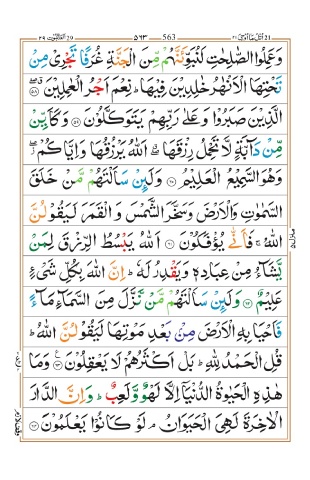 ٢٩ العنكبوت 29 ٥٦٣ 563 اتل ما اوحی ٢١ 21
وَعَمِلُوا الصّٰلِحٰتِ لَنُبَوِّئَنَّهُمْ مِّنَ الْجَنَّةِ غُرَفًا تَجْرِیْ مِنْ
تَحْتِهَا الْاَنْهٰرُ خٰلِدِیْنَ فِیْهَا ؕ نِعْمَ اَجْرُ الْعٰمِلِیْنَ ۝۵۸
الَّذِیْنَ صَبَرُوْا وَعَلٰی رَبِّهِمْ یَتَوَكَّلُوْنَ ۝۵۹ وَكَاَیِّنْ
مِّنْ دَآبَّةٍ لَّا تَحْمِلُ رِزْقَهَا ۖ اَللّٰهُ یَرْزُقُهَا وَاِیَّاكُمْ ۖ
وَهُوَ السَّمِیْعُ الْعَلِیْمُ ۝۶۰ وَلَئِنْ سَاَلْتَهُمْ مَّنْ خَلَقَ
السَّمٰوٰتِ وَالْاَرْضَ وَسَخَّرَ الشَّمْسَ وَالْقَمَرَ لَیَقُوْلُنَّ
اللّٰهُ ۚ فَاَنّٰی یُؤْفَكُوْنَ ۝۶۱ اَللّٰهُ یَبْسُطُ الرِّزْقَ لِمَنْ
یَّشَآءُ مِنْ عِبَادِهٖ وَیَقْدِرُ لَهٗ ؕ اِنَّ اللّٰهَ بِكُلِّ شَیْءٍ
عَلِیْمٌ ۝۶۲ وَلَئِنْ سَاَلْتَهُمْ مَّنْ نَّزَّلَ مِنَ السَّمَآءِ مَآءً
فَاَحْیَا بِهِ الْاَرْضَ مِنْۢ بَعْدِ مَوْتِهَا لَیَقُوْلُنَّ اللّٰهُ ؕ
قُلِ الْحَمْدُ لِلّٰهِ ؕ بَلْ اَكْثَرُهُمْ لَا یَعْقِلُوْنَ ۝۶۳ وَمَا
هٰذِهِ الْحَیٰوةُ الدُّنْیَاۤ اِلَّا لَهْوٌ وَّلَعِبٌ ؕ وَاِنَّ الدَّارَ
الْاٰخِرَةَ لَهِیَ الْحَیَوَانُ ۘ لَوْ كَانُوْا یَعْلَمُوْنَ ۝۶۴